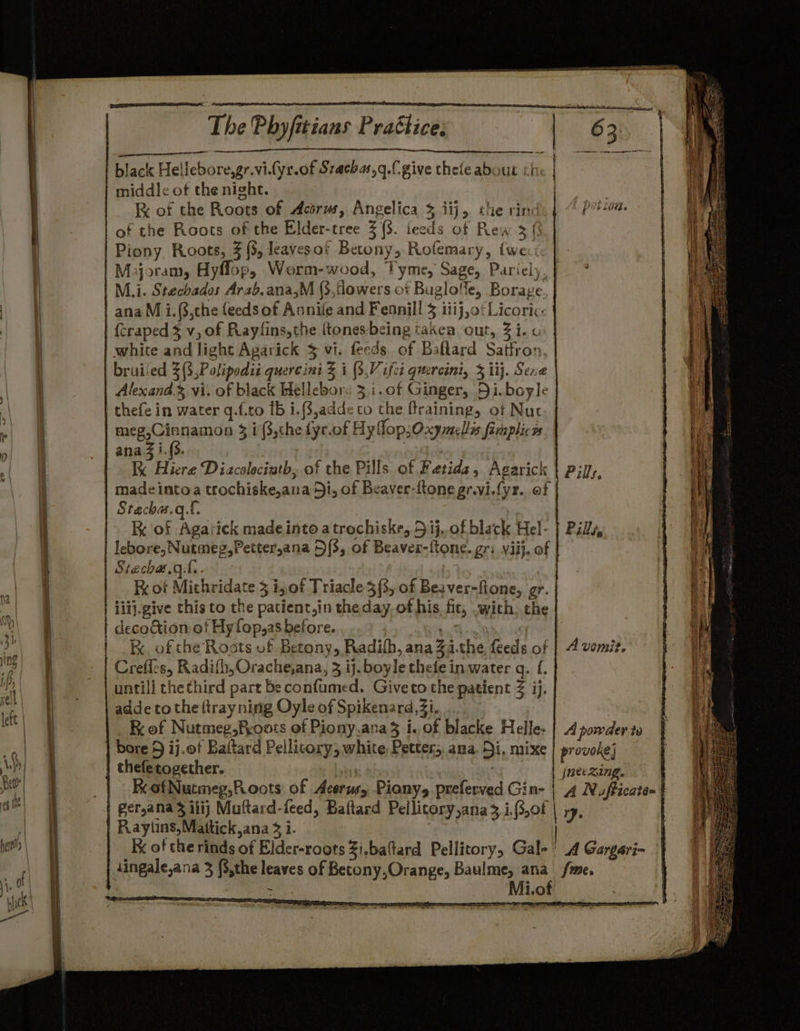 The Phyſitians Practice. 63
black Hellebore,gr.vi.ſyr.of Stæchas,q.ſ.give theſe about the
middle of the night.
℞ of the Roots of Acorus, Angelica ʒ iij, the rinds
A potion.
of the Roots of the Elder-tree ℥ ß. ſeeds of Rew ʒ ß
Piony Roots, ℥ ß, leaves of Betony, Roſemary, ſweete
Majoram, Hyſſop, Worm-wood, Tyme, Sage, Parſely,
M.i. Stechados Arab.ana,M ß,flowers of Bugloſſe, Borage,
ana M i.ß,the ſeeds of Anniſe and Fennill ʒ iiij,of Licorice
ſcraped ʒ v, of Rayſins,the ſtones being taken out, ℥ i. of
white and light Agarick ʒ vi. ſeeds of Baſtard Saffron,
bruiſed ℥ ß,Polipodii quercini ℥ i ß,Viſci quercini, ʒ iij. Sene
Alexand.ʒ vi. of black Hellebore ʒ i. of Ginger, ℈i.boyle
theſe in water q.ſ.to ℔ i.ß,adde to the ſtraining, of Nut-
meg,Cinnamon ʒ i ß,the ſyr.of Hyſſop,Oxymellis ſimplicis
ana ℥ i.ß.
℞ Hiere Diacolocinth, of the Pills of Fetida, Agarick
Pills.
made into a trochiske,ana ℈i, of Beaver-ſtone gr.vi.ſyr. of
Stæchas.q.ſ.
℞ of Agarick made into a trochiske, ℈ ij. of black Hel-
Pills,
lebore,Nutmeg,Petter,ana ℈ß, of Beaver-ſtone.gr. viij. of
Stæchas.q.ſ.
℞ of Michridate ʒ i,of Triacle ʒß, of Beaver-ſtone, gr.
iiij.give this to the patient,in the day of his fit, with the
decoction of Hyſop,as before.
℞ of the Roots of Betony, Radiſh, ana ℥i.the ſeeds of
A vomit.
Creſſes, Radiſh,Orache,ana, ʒ ij. boyle theſe in water q. ſ.
untill the third part be conſumed. Give to the patient ℥ ij.
adde to the ſtrayning Oyle of Spikenard,℥i.
℞ of Nutmeg,Roots of Piony.ana ʒ i. of blacke Helle-
A powder to
bore ℈ ij.of Baſtard Pellitory, white Petter, ana ℈i, mixe
provokej
theſe together.
ſneezing.
℞ of Nutmeg,Roots of Acorus, Piony, preſerved Gin-
A Naſticato-
ger,ana ʒ iiij Muſtard-ſeed, Baſtard Pellitory,ana ʒ i.ß,of
ry.
Rayſins,Maſtick,ana ʒ i.
℞ of the rinds of Elder-roots ℥i.baſtard Pellitory, Gal-
A Gargari-
lingale,ana ʒ ß,the leaves of Betony,Orange, Baulme, ana
ſme.
Mi.of